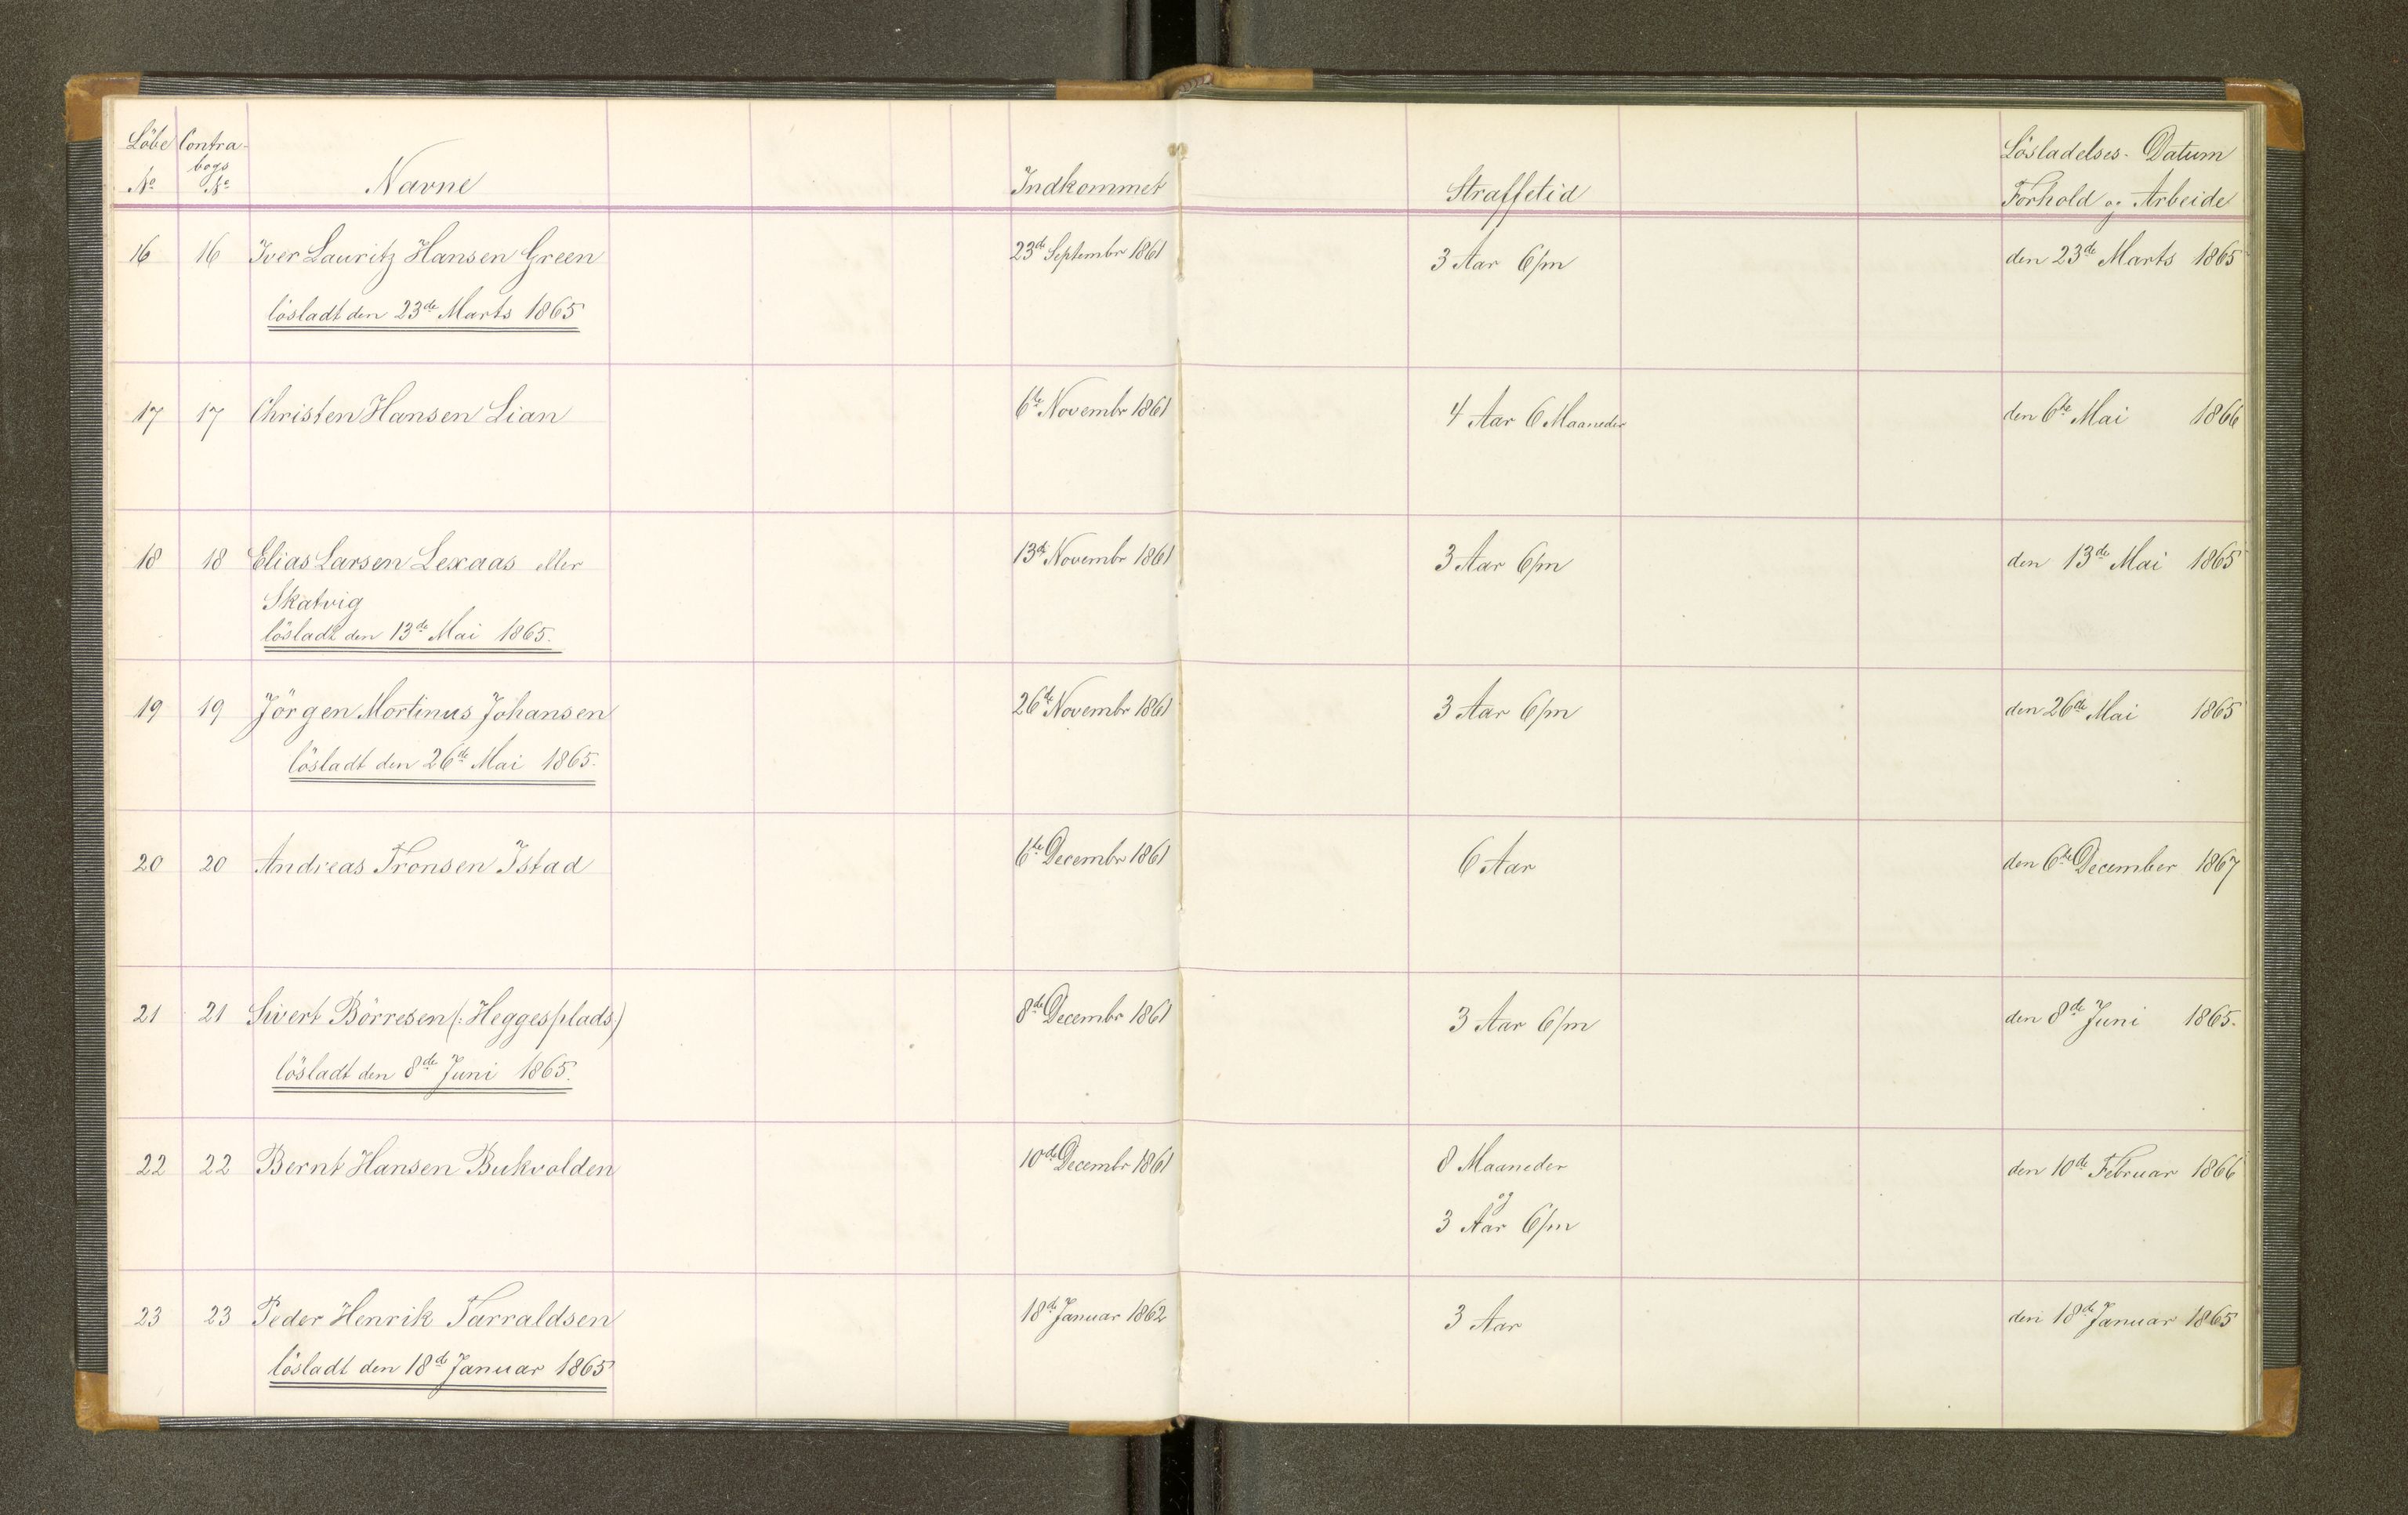 Löbe Contra- Lösladelses- Datum
bogs
No No Navne Indkommet Straffetid Forhold og Arbeide
16 16 Iver Lauritz Hansen Green 23de Septembr 1861 3 Aar 6/m den 23de Marts 1865
lösladt den 23de Marts 1865
17 17 Christen Hansen Lian 6te Novembr 1861 4 Aar 6 Maaneder den 6te Mai 1866
18 18 Elias Larsen Lexaas eller 13de Novembr 1861 3 Aar 6/m den 13de Mai 1865
Skatvig
lösladt den 13de Mai 1865.
19 19 Jörgen Mortinus Johansen 26de Novembr 1861 3 Aar 6/m den 26de Mai 1865
lösladt den 26de Mai 1865.
20 20 Andreas Tronsen Istad 6te Decembr 1861 6 Aar den 6te December 1867
21 21 Sivert Börresen (: Heggesplads) 8de Decembr 1861 3 Aar 6/m den 8de Juni 1865.
lösladt den 8de Juni 1865.
22 22 Bernt Hansen Bukvolden 10de Decembr 1861 8 Maaneder den 10de Februar 1866
og
3 Aar 6/m
23 23 Peder Henrik Tarraldsen 18de Januar 1862 3 Aar den 18de Januar 1865
lösladt den 18de Januar 1865